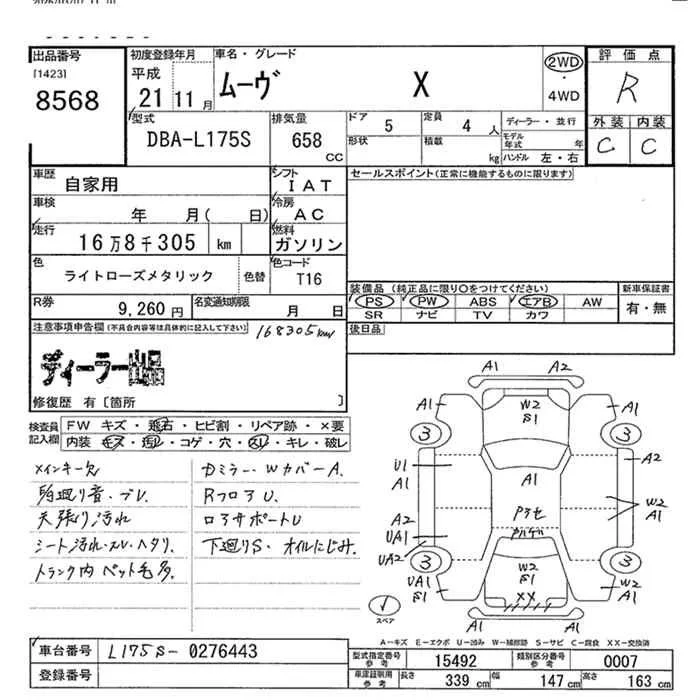 出品番号
[1423]
8568
初度登録年月
平成
21 11 月
車名・グレード
ムーヴ X
2WD
・
4WD
評価点
R
外装 内装
C C
型式
DBA-L175S
排気量
658
CC
ドア
5
定員
4 人
形状
積載
kg
ディーラー・並行
モデル年式 年
ハンドル 左・右
車歴
自家用
シフト
IAT
車検
年 月( 日)
冷房
AC
走行
16万8千305 km
燃料
ガソリン
色
ライトローズメタリック
色替
色コード
T16
R券
9,260円
名変通知期限
月 日
セールスポイント(正常に機能するものに限ります)
装備品(純正品に限り○をつけてください)
新車保証書
PS PW ABS エアB AW
SR ナビ TV カワ
有・無
後日品
注意事項申告欄(不具合内容等は具体的に記入して下さい)
168305km
ディーラー出品
修復歴 有〔箇所 〕
検査員
記入欄
FW キズ・飛石・ヒビ割・リペア跡・×要
内装 キズ・汚れ・コゲ・穴・スレ・キレ・破レ
メインキー欠
足廻り音・ブレ.
天張り汚れ
シート汚れ・スレ・ヘタリ.
トランク内 ペット毛多.
Rフロアu.
ロアサポートU
下廻りS・オイルにじみ.
A1 A2
A1 W2 S1 A1
3 3
U1 A1 A1 A2
W2 A1
A2
UA1
UA2
3 3
UA1 S1
W2 S1 XX
W2 A1
A1 A1
スペア
A－キズ E－エクボ U－凹み W－補修跡 S－サビ C－腐食 XX－交換済
車台番号
L175S-0276443
登録番号
型式指定番号
参考
15492
類別区分番号
参考
0007
車庫証明用
参考
長さ
339 cm
幅
147 cm
高さ
163 cm